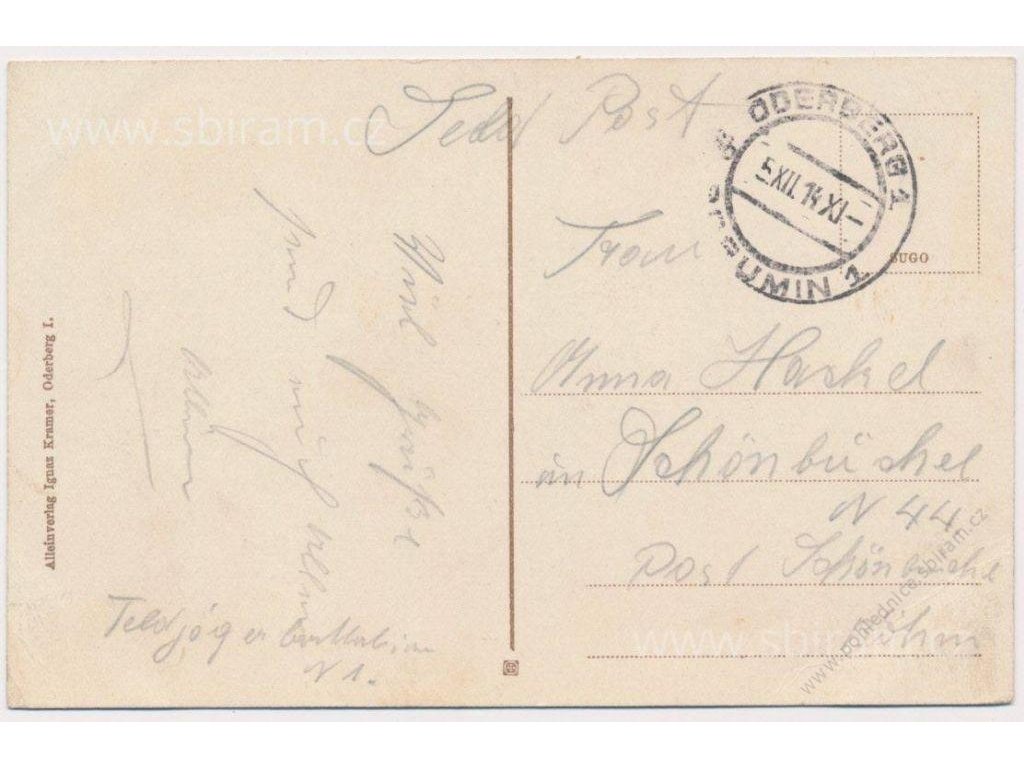 www.sbiram.cz
Feld Post
ODERBERG 1
5 XII. 14 XI-
UMIN 1
SUGO
Frau
Anna Haskel
in Schönbüchel
N 44
Post Schönbüchel
Böhm
Viel Grüße
und
Feldjäger Battalion
N 1.
Alleinverlag Ignaz Kramer, Oderberg I.
www.sbiram.cz
www.pohlednice.sbiram.cz